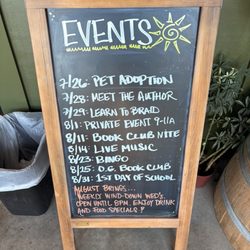 EVENTS
7/26: PET ADOPTION
7/28: MEET THE AUTHOR
7/29: LEARN TO BRAID
8/1: PRIVATE EVENT 9-11A
8/11: BOOK CLUB NITE
8/14: LIVE MUSIC
8/23: BINGO
8/25: O.G. BOOK CLUB
8/31: 1ST DAY OF SCHOOL
AUGUST BRINGS...
WEEKLY WIND-DOWN WED'S.
OPEN UNTIL 8PM. ENJOY DRINK
AND FOOD SPECIALS!